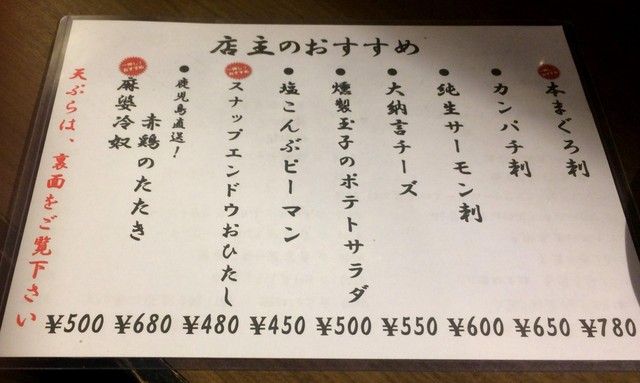 店主のおすすめ
本まぐろ刺 ¥780
● カンパチ刺 ¥650
● 純生サーモン刺 ¥600
● 大納言チーズ ¥550
● 燻製玉子のポテトサラダ ¥500
● 塩こんぶピーマン ¥450
おすすめ
スナップエンドウおひたし ¥480
● 鹿児島直送！
赤鶏のたたき ¥680
おすすめ
麻婆冷奴 ¥500
天ぷらは、裏面をご覧下さい